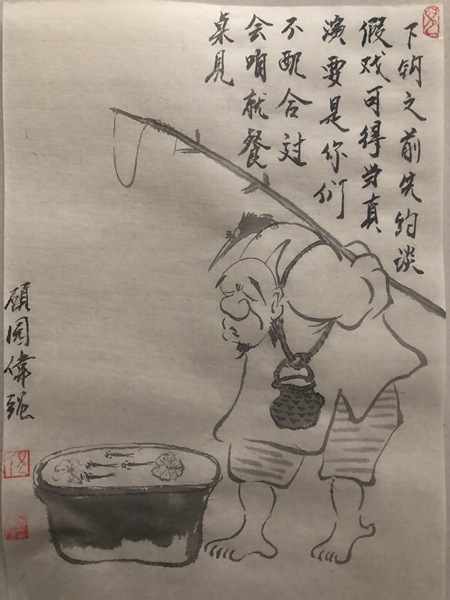 下钩之前先约谈
假戏可得当真
演要是你们
不配合过
会咱就餐
桌见